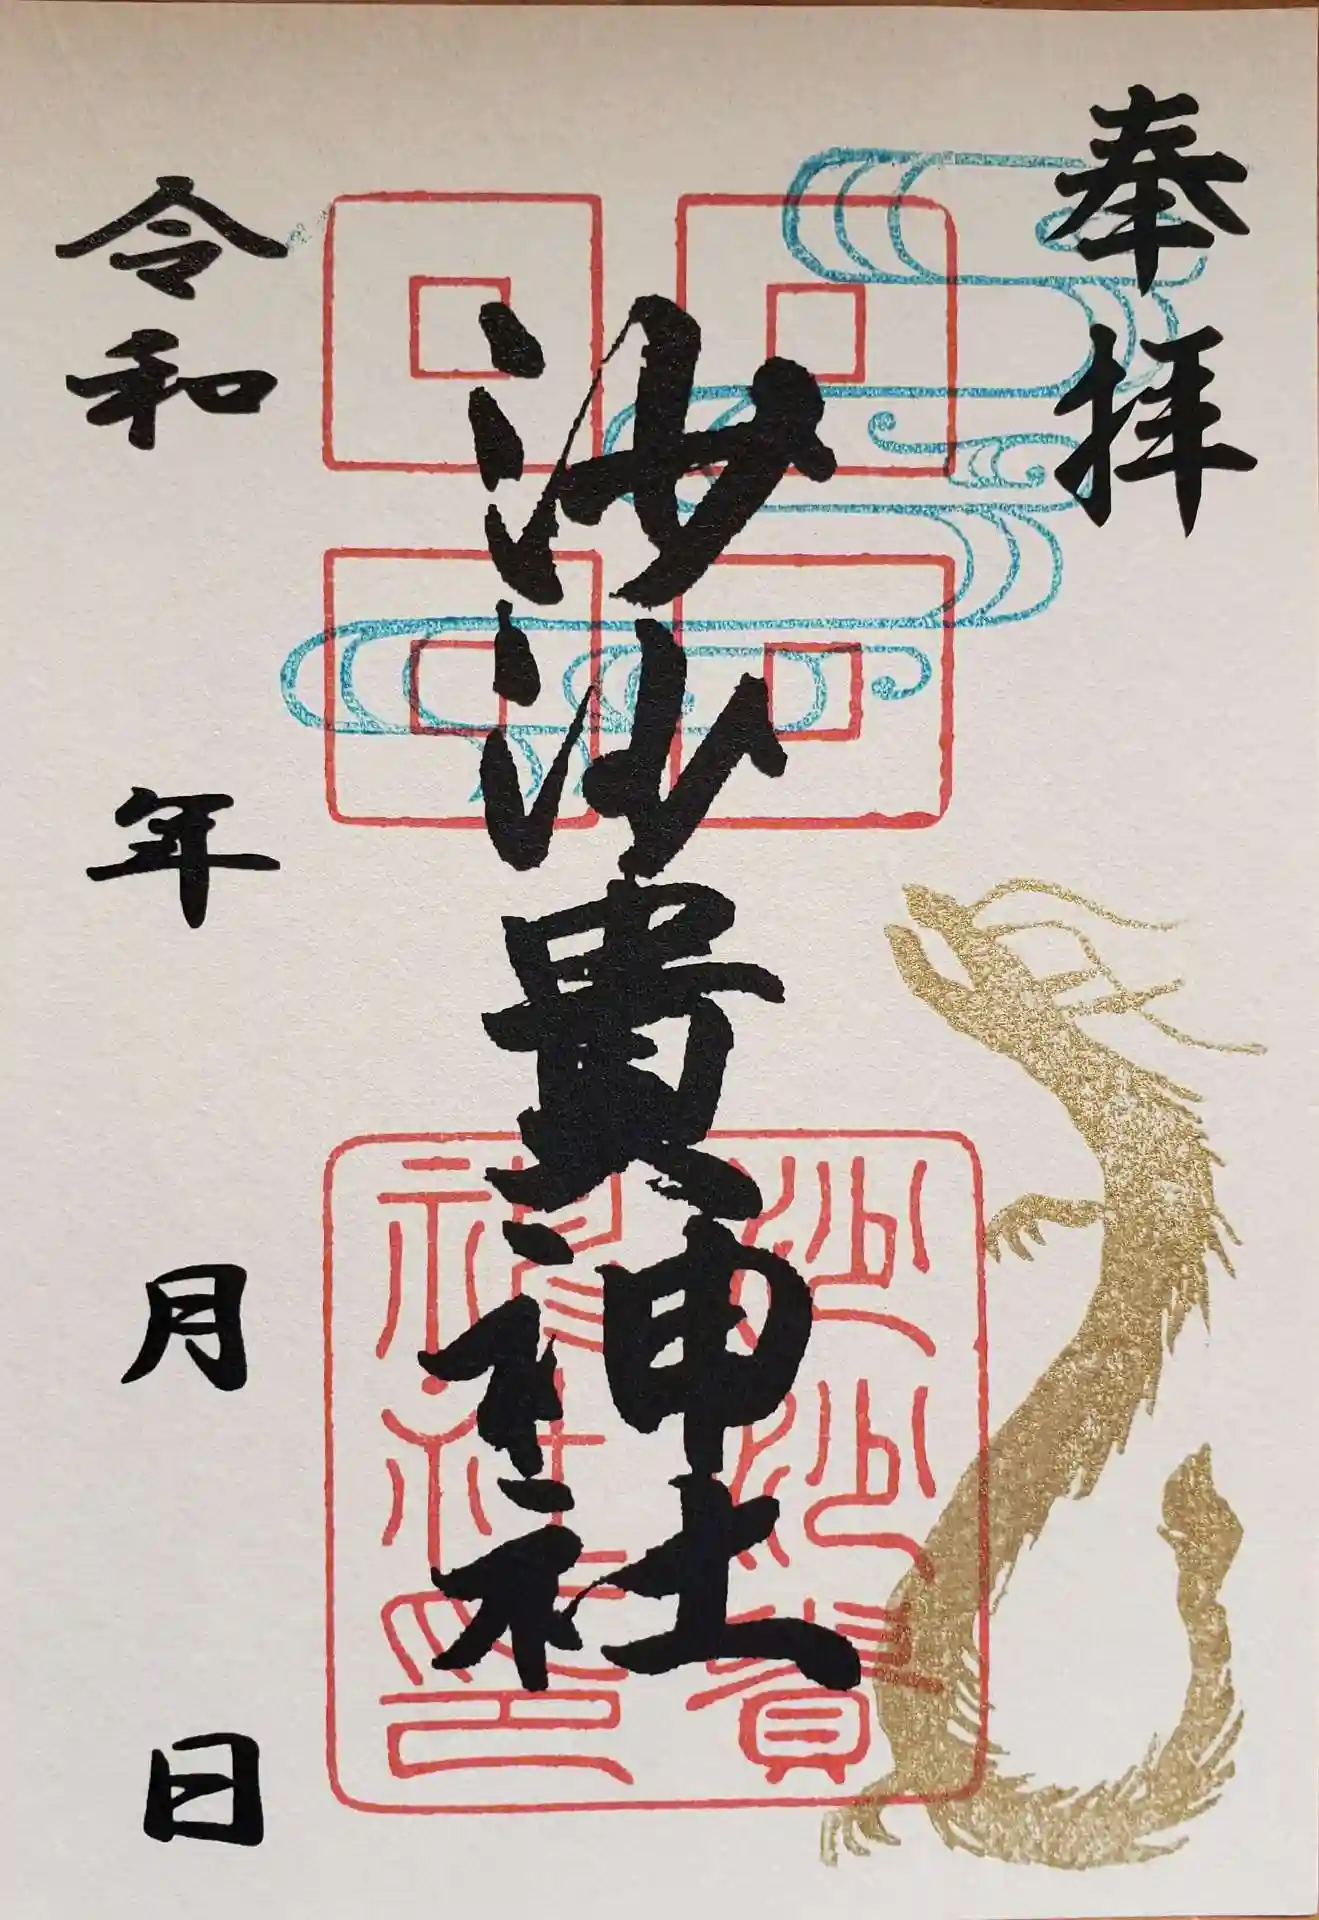 奉拝
沙沙貴神社
令和　年　月　日
沙沙貴
神社印